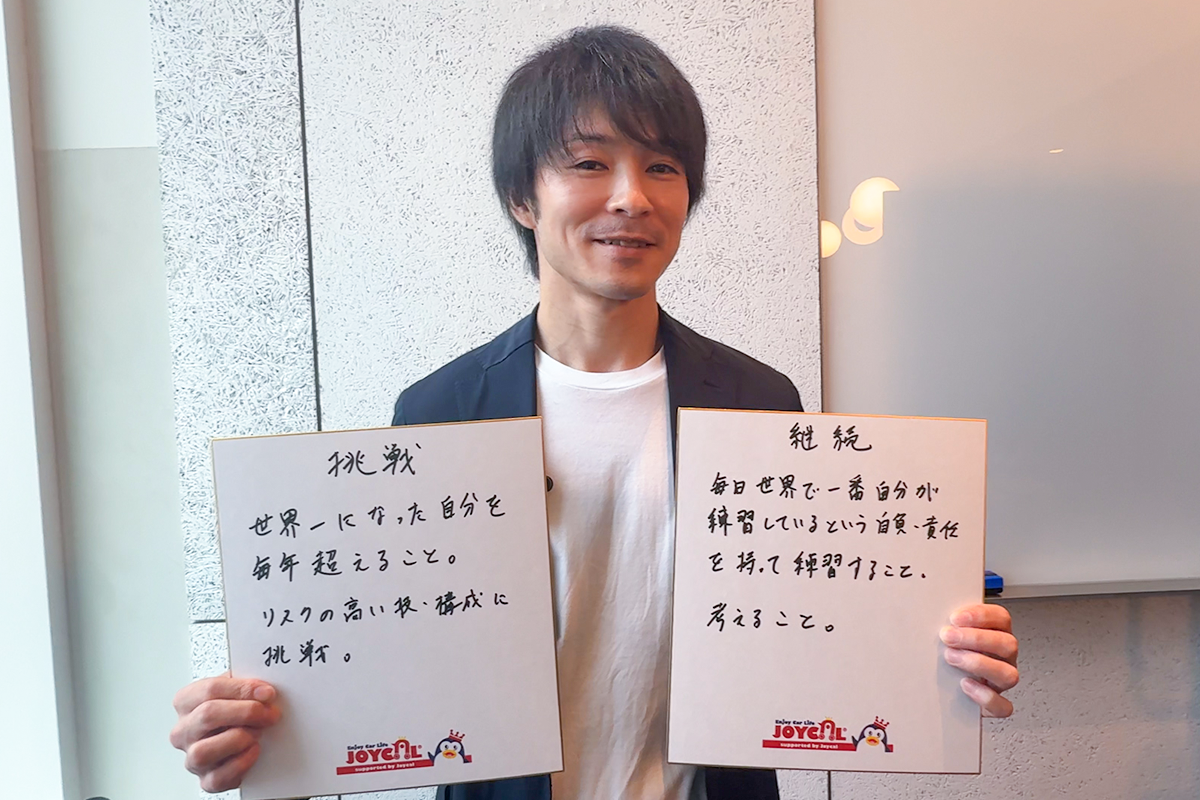 挑戦
世界一になった自分を
毎年超えること。
リスクの高い技・構成に
挑戦。
Enjoy Car Life
JOYCAL
supported by Joycal
継続
毎日世界で一番自分が
練習しているという自負・責任
を持って練習すること、
考えること。
Enjoy Car Life
JOYCAL
supported by Joycal